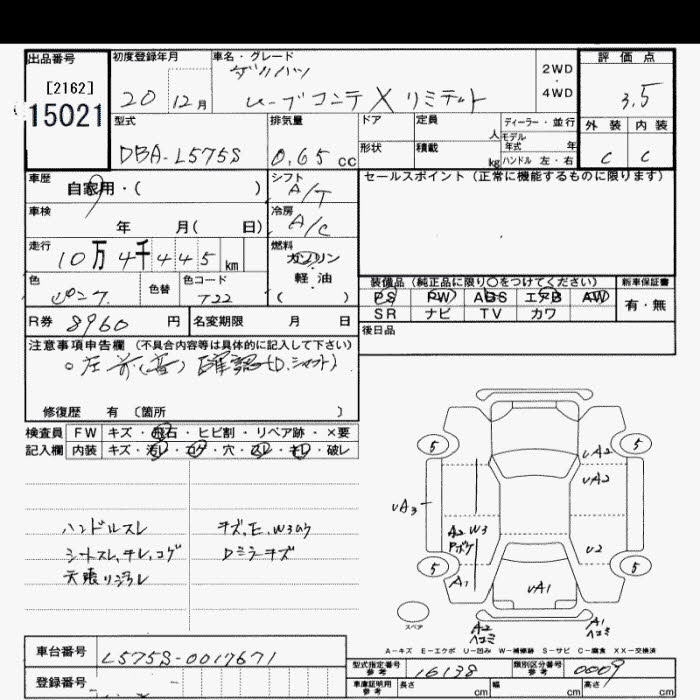 出品番号
[2162]
15021
初度登録年月
20 12月
車名・グレード
ダイハツ
ムーブコンテ X リミテット
2WD
4WD
評価点
3.5
外装 内装
C C
型式
DBA-L575S
排気量
0.65 cc
ドア
定員
人
形状
積載
kg
ディーラー・並行
モデル
年式 年
ハンドル 左・右
車歴
自家用・( )
シフト
A/T
車検
年 月( 日)
冷房
A/C
走行
10万4千445km
燃料
ガソリン
軽・油
( )
色
ピンク
色替
色コード
T22
R券 8960 円
名変期限 月 日
セールスポイント(正常に機能するものに限ります)
装備品(純正品に限り○をつけてください)
新車保証書
PS PW ABS エアB AW
有・無
SR ナビ TV カワ
後日品
注意事項申告欄(不具合内容等は具体的に記入して下さい)
修復歴 有 〔箇所 〕
検査員
記入欄
FW キズ・飛石・ヒビ割・リペア跡・×要
内装 キズ・汚レ・コゲ・穴・スレ・キレ・破レ
ハンドルスレ
シートスレ,チレ,コゲ
キズ,E,W3有
Dミラーキズ
5 5
5 5
UA2
UA2
UA3
A2 W3
U2
A1
UA1
A2
ヘコミ
A1
ヘコミ
スペア
A-キズ E-エクボ U-凹み W-補修跡 S-サビ C-腐食 XX-交換済
車台番号
L575S-0017671
登録番号
型式指定番号
参考
16138
類別区分番号
参考
0009
車庫証明用
参考
長さ cm 幅 cm 高さ cm